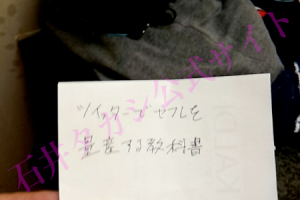 ツイッターでセフレを
量産する教科書
石井タカシ公式サイト